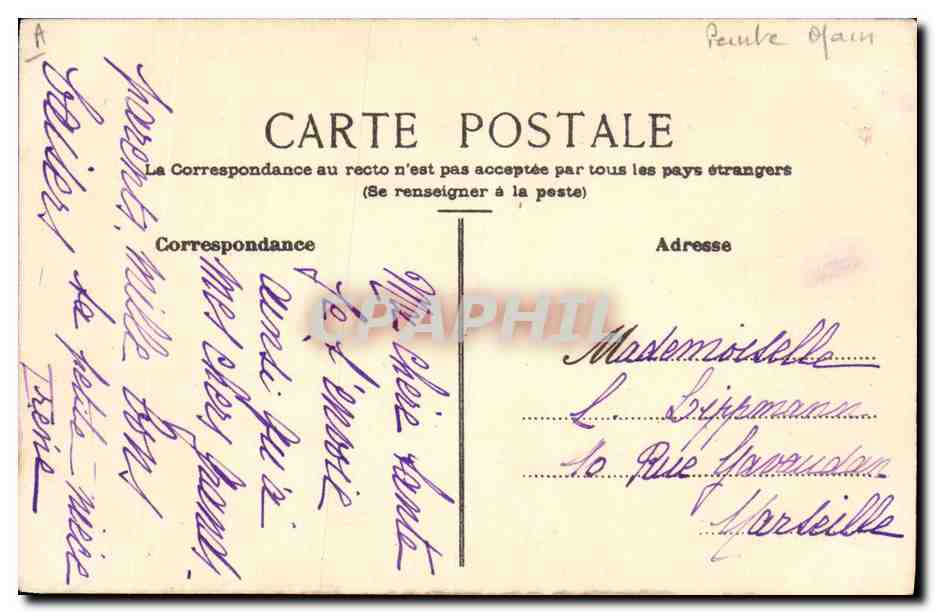 A
CARTE POSTALE
La Correspondance au recto n'est pas acceptée par tous les pays étrangers
(Se renseigner à la poste)
Correspondance
Adresse
CPAPHIL
Ma chère tante
Je t'envoie
ainsi qu'à
mes chers grands
parents, mille bons
baisers, ta petite nièce
Irène
Mademoiselle
L. Lippmann
10 Rue Gavaudan
Marseille